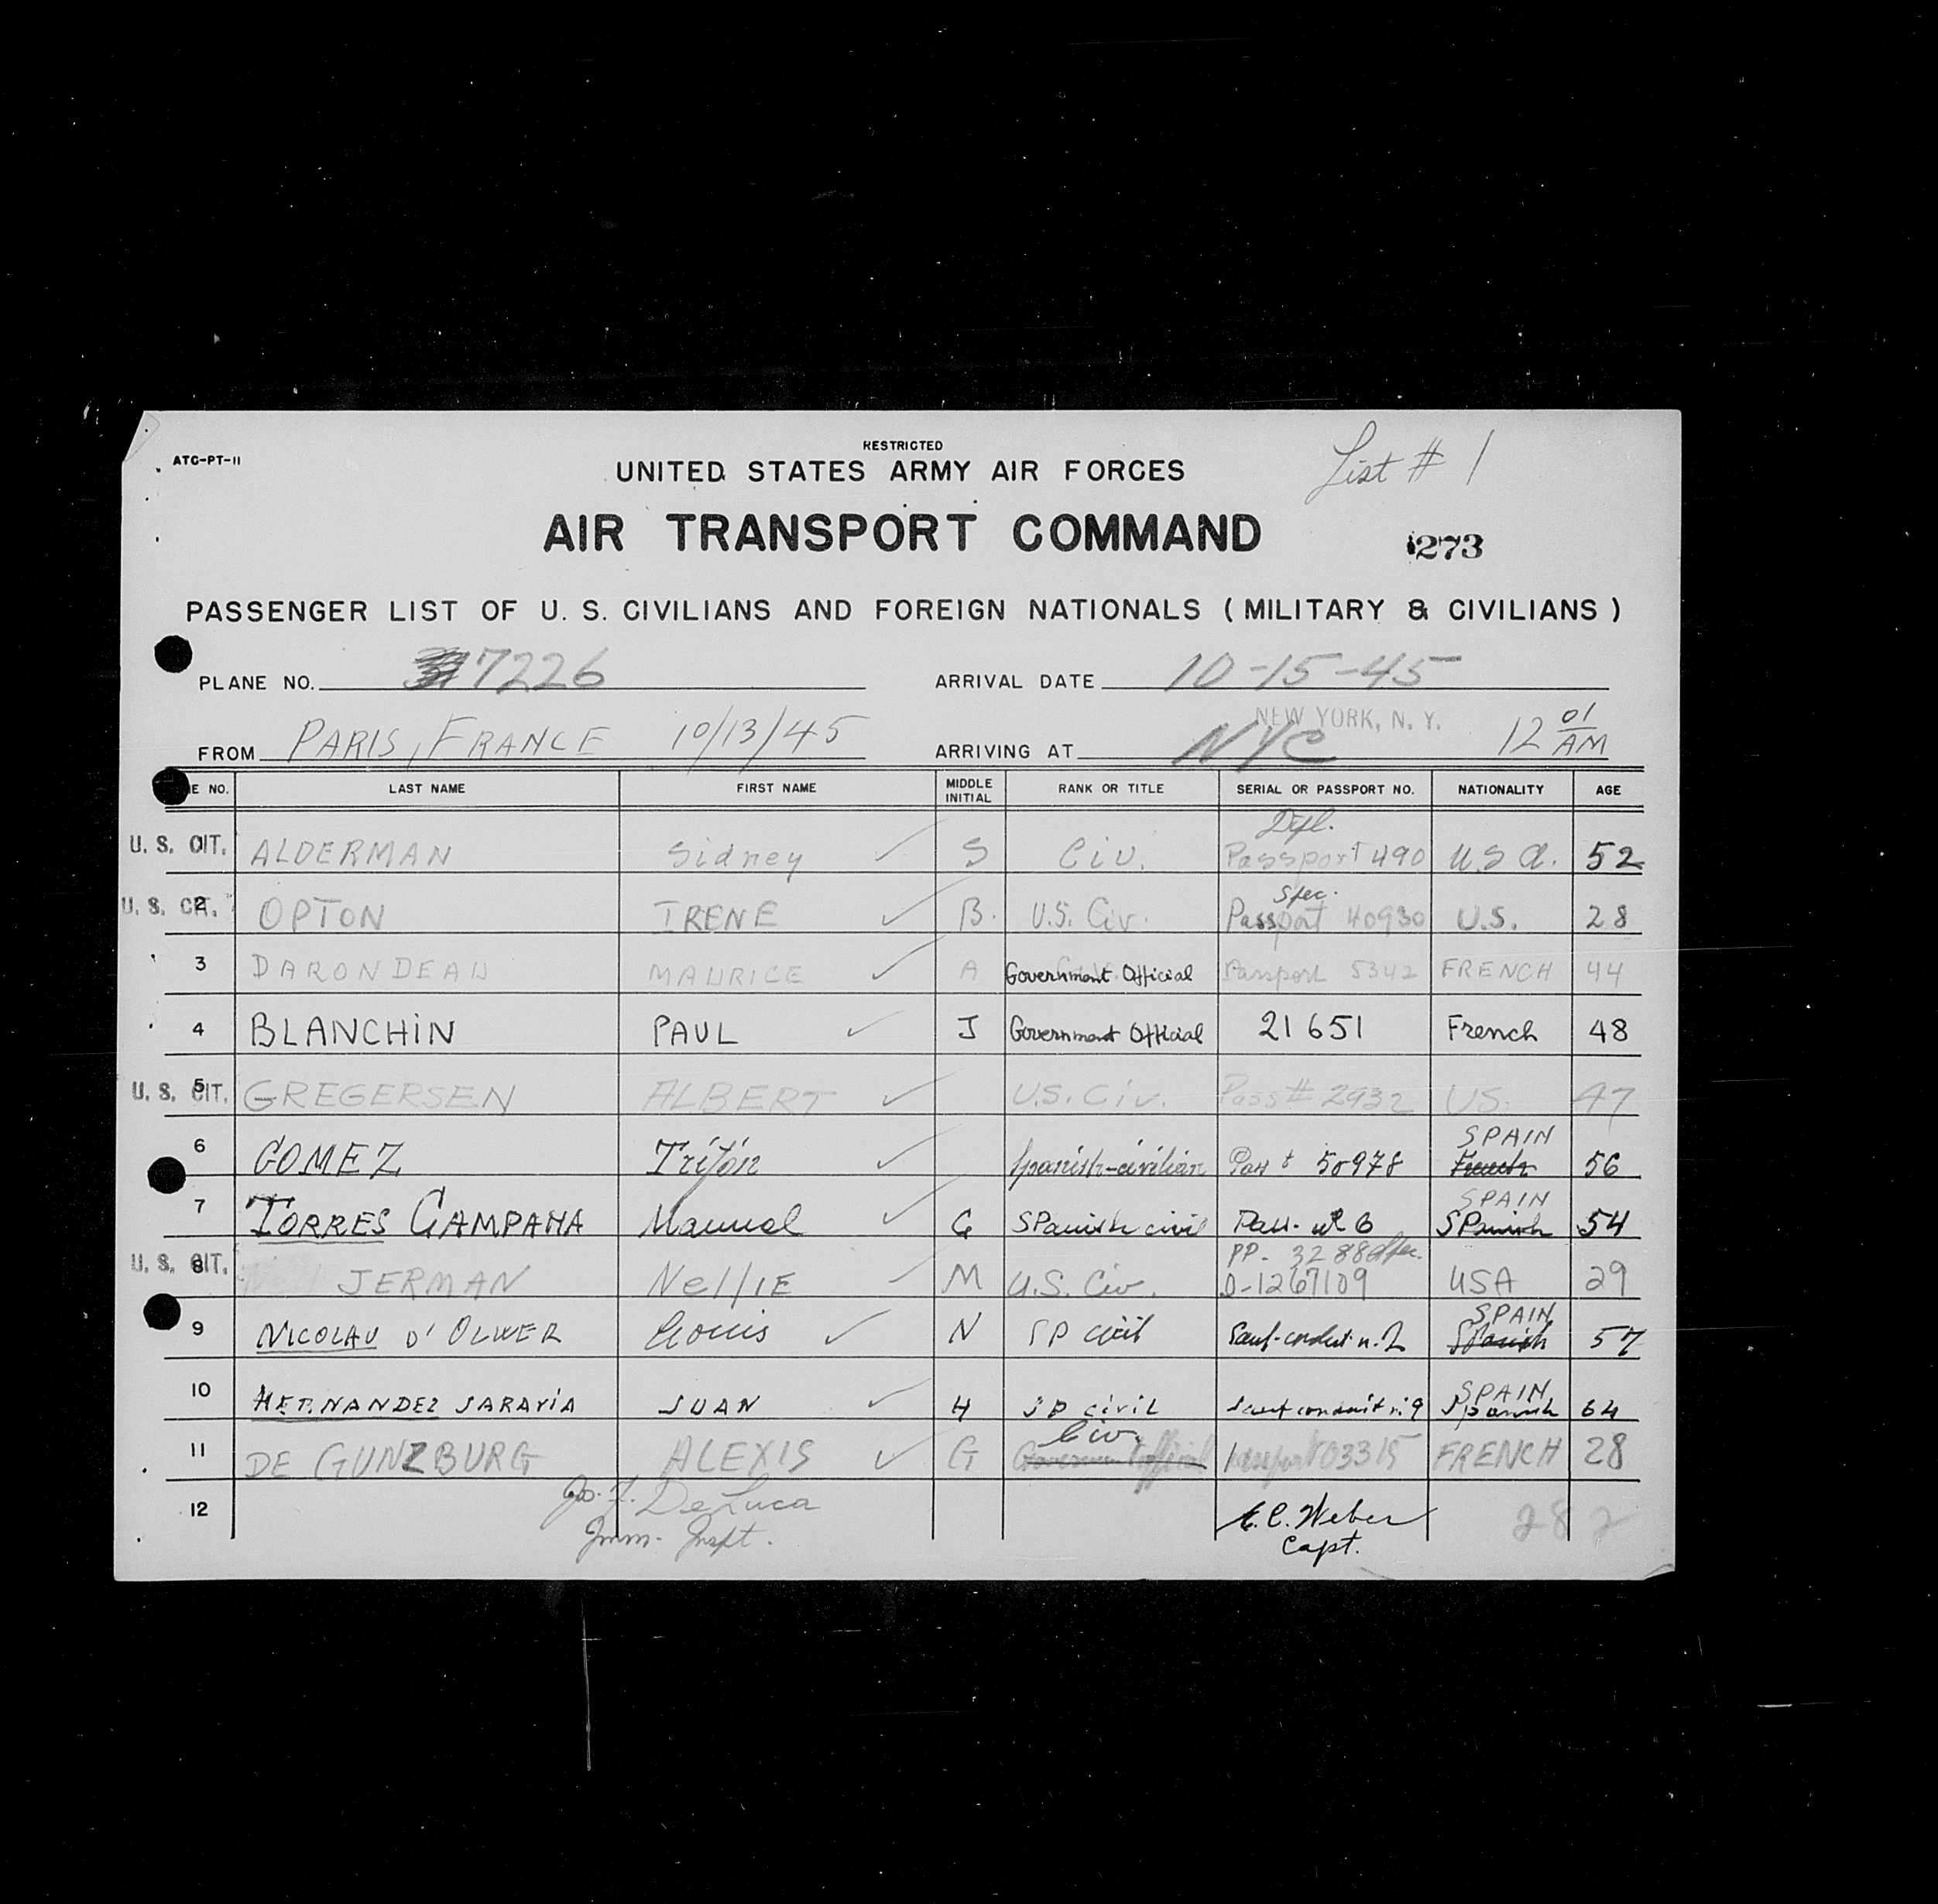 RESTRICTED
ATC-PT-11
UNITED STATES ARMY AIR FORCES
List # 1
AIR TRANSPORT COMMAND
273
PASSENGER LIST OF U. S. CIVILIANS AND FOREIGN NATIONALS ( MILITARY & CIVILIANS )
PLANE NO. 7226 ARRIVAL DATE 10-15-45
NEW YORK, N. Y.
FROM PARIS, FRANCE 10/13/45 ARRIVING AT NYC 12 01 AM
E NO. LAST NAME FIRST NAME MIDDLE INITIAL RANK OR TITLE SERIAL OR PASSPORT NO. NATIONALITY AGE
Dipl.
U. S. CIT. 1 ALDERMAN Sidney S Civ. Passport 490 U.S.A. 52
Spec.
U. S. CIT. 2 OPTON IRENE B. U.S. Civ. Passport 40930 U.S. 28
3 DARONDEAU MAURICE A Government Official Passport 5342 FRENCH 44
4 BLANCHIN PAUL J Government Official 21651 French 48
U. S. CIT. 5 GREGERSEN ALBERT U.S. Civ. Pass # 2932 US. 47
SPAIN
6 GOMEZ Trifón Spanish-civilian Pass t 50978 French 56
SPAIN
7 TORRES CAMPAÑA Manuel G SPanish civil Pass. nº 6 SPanish 54
PP. 3288 Spec.
U. S. CIT. 8 JERMAN NellIE M U.S. Civ. D-1267109 USA 29
SPAIN
9 NICOLAU D' OLWER Louis N SP civil Sauf-conduit n. 2 Spanish 57
SPAIN
10 HERNANDEZ SARAVIA JUAN H SP civil Sauf conduit n: 9 Spanish 64
Civ.
11 DE GUNZBURG ALEXIS G Government official Passport 03315 FRENCH 28
12
Jo. F. DeLuca
Imm. Inspt.
E. C. Weber
Capt.
282